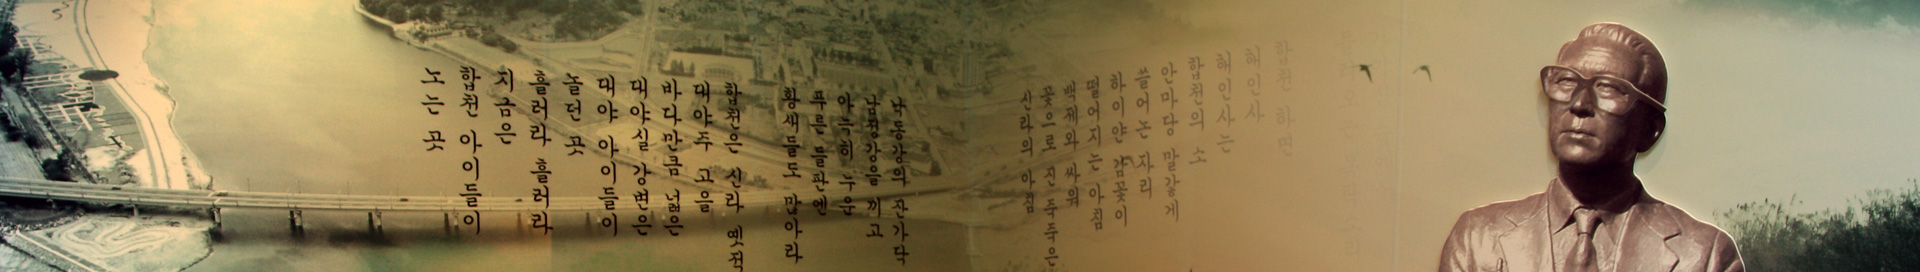 합천 하면
해인사
해인사는
합천의 노
안마당 말갛게
쓸어논 자리
하이얀 감꽃이
떨어지는 아침
백제와 싸워
꽃으로 진 죽죽은
신라의 아침
낙동강의 잔가닥
남정강을 끼고
아늑히 두운
푸른 들판엔
황새들도 많아라
합천은 신라 옛적
대야주 고을
바다만큼 넓은
대야실 강변은
대야 아이들이
놀던 곳
흘러라 흘러라
지금은
합천 아이들이
노는 곳